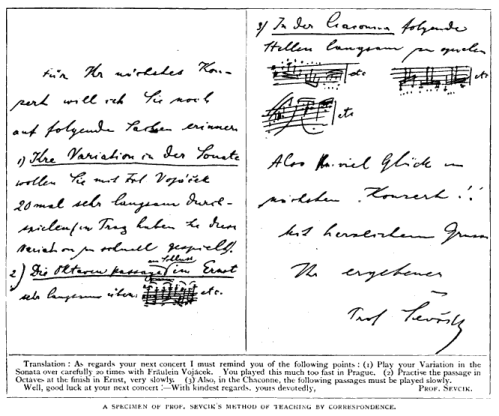 Für Ihr nächstes Kon-
zert will ich Sie noch
auf folgende Sachen erinnern
1) Ihre Variation in der Sonate
wollen Sie mit Frl Vojáček
20 mal sehr langsam durch-
spielen in Prag haben Sie diese
Variation zu schnell gespielt.
am Schluss
2) Die Oktaven passage in Ernst
sehr langsam üben etc.
3) In der Ciaconna folgende
Stellen langsam zu spielen
etc
etc
etc
Also viel Glück im
nächsten Konzert!!
Mit herzlichem Gruss
Ihr ergebener
Prof Ševčík
Translation: As regards your next concert I must remind you of the following points: (1) Play your Variation in the
Sonata over carefully 20 times with Fräulein Vojácek. You played this much too fast in Prague. (2) Practise the passage in
Octaves at the finish in Ernst, very slowly. (3) Also, in the Chaconne, the following passages must be played slowly.
Well, good luck at your next concert:—With kindest regards, yours devotedly, PROF. SEVCIK.
A SPECIMEN OF PROF. SEVCIK'S METHOD OF TEACHING BY CORRESPONDENCE.